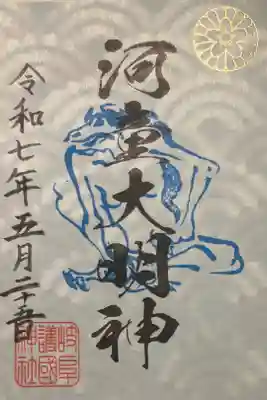 河童大明神
令和七年五月二十五日
岐阜
護國
神社